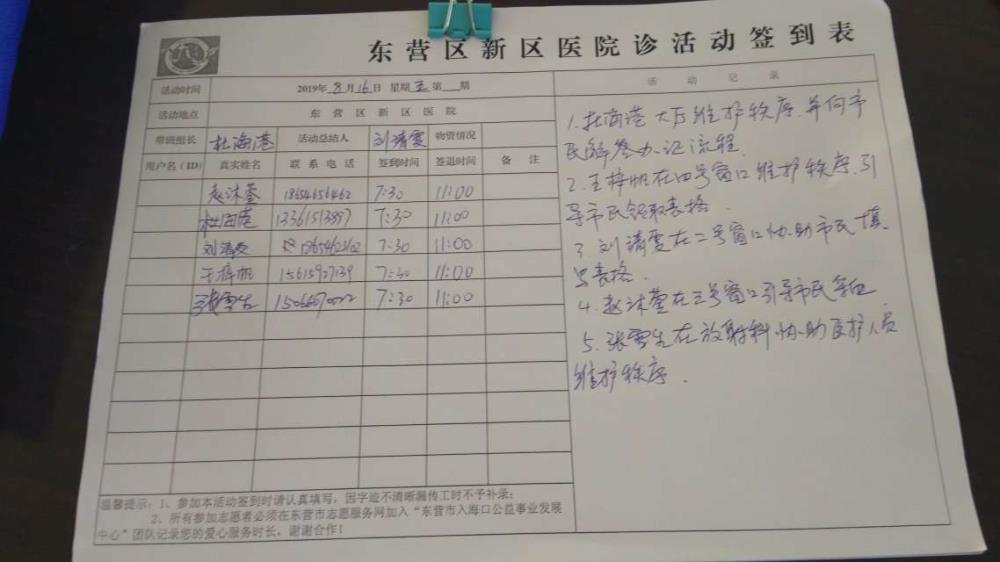 东营区新区医院诊活动签到表
活动时间 2019年8月16日 星期五第 期
活动地点 东营区新区医院
带班组长 杜海港 活动总结人 刘清雯 物资情况
用户名(ID) 真实姓名 联系电话 签到时间 签退时间 备注
赵沐莹 18654656462 7:30 11:00
杜海港 7:30 11:00
刘清雯 7:30 11:00
王梓帆 15615927139 7:30 11:00
张雪生 7:30 11:00
温馨提示:1、参加本活动签到时请认真填写,因字迹不清晰漏传工时不予补录;
2、所有参加志愿者必须在东营市志愿服务网加入“东营市入海口公益事业发展
中心”团队记录您的爱心服务时长,谢谢合作!
活动记录
1.杜海港大厅维护秩序,并向市
民解答办证流程.
2.王梓帆在四号窗口维护秩序,引
导市民领取表格.
3 刘清雯在二号窗口协助市民填
写表格.
4.赵沐莹在三号窗口引导市民
5.张雪生在放射科协助医护人员
维护秩序.